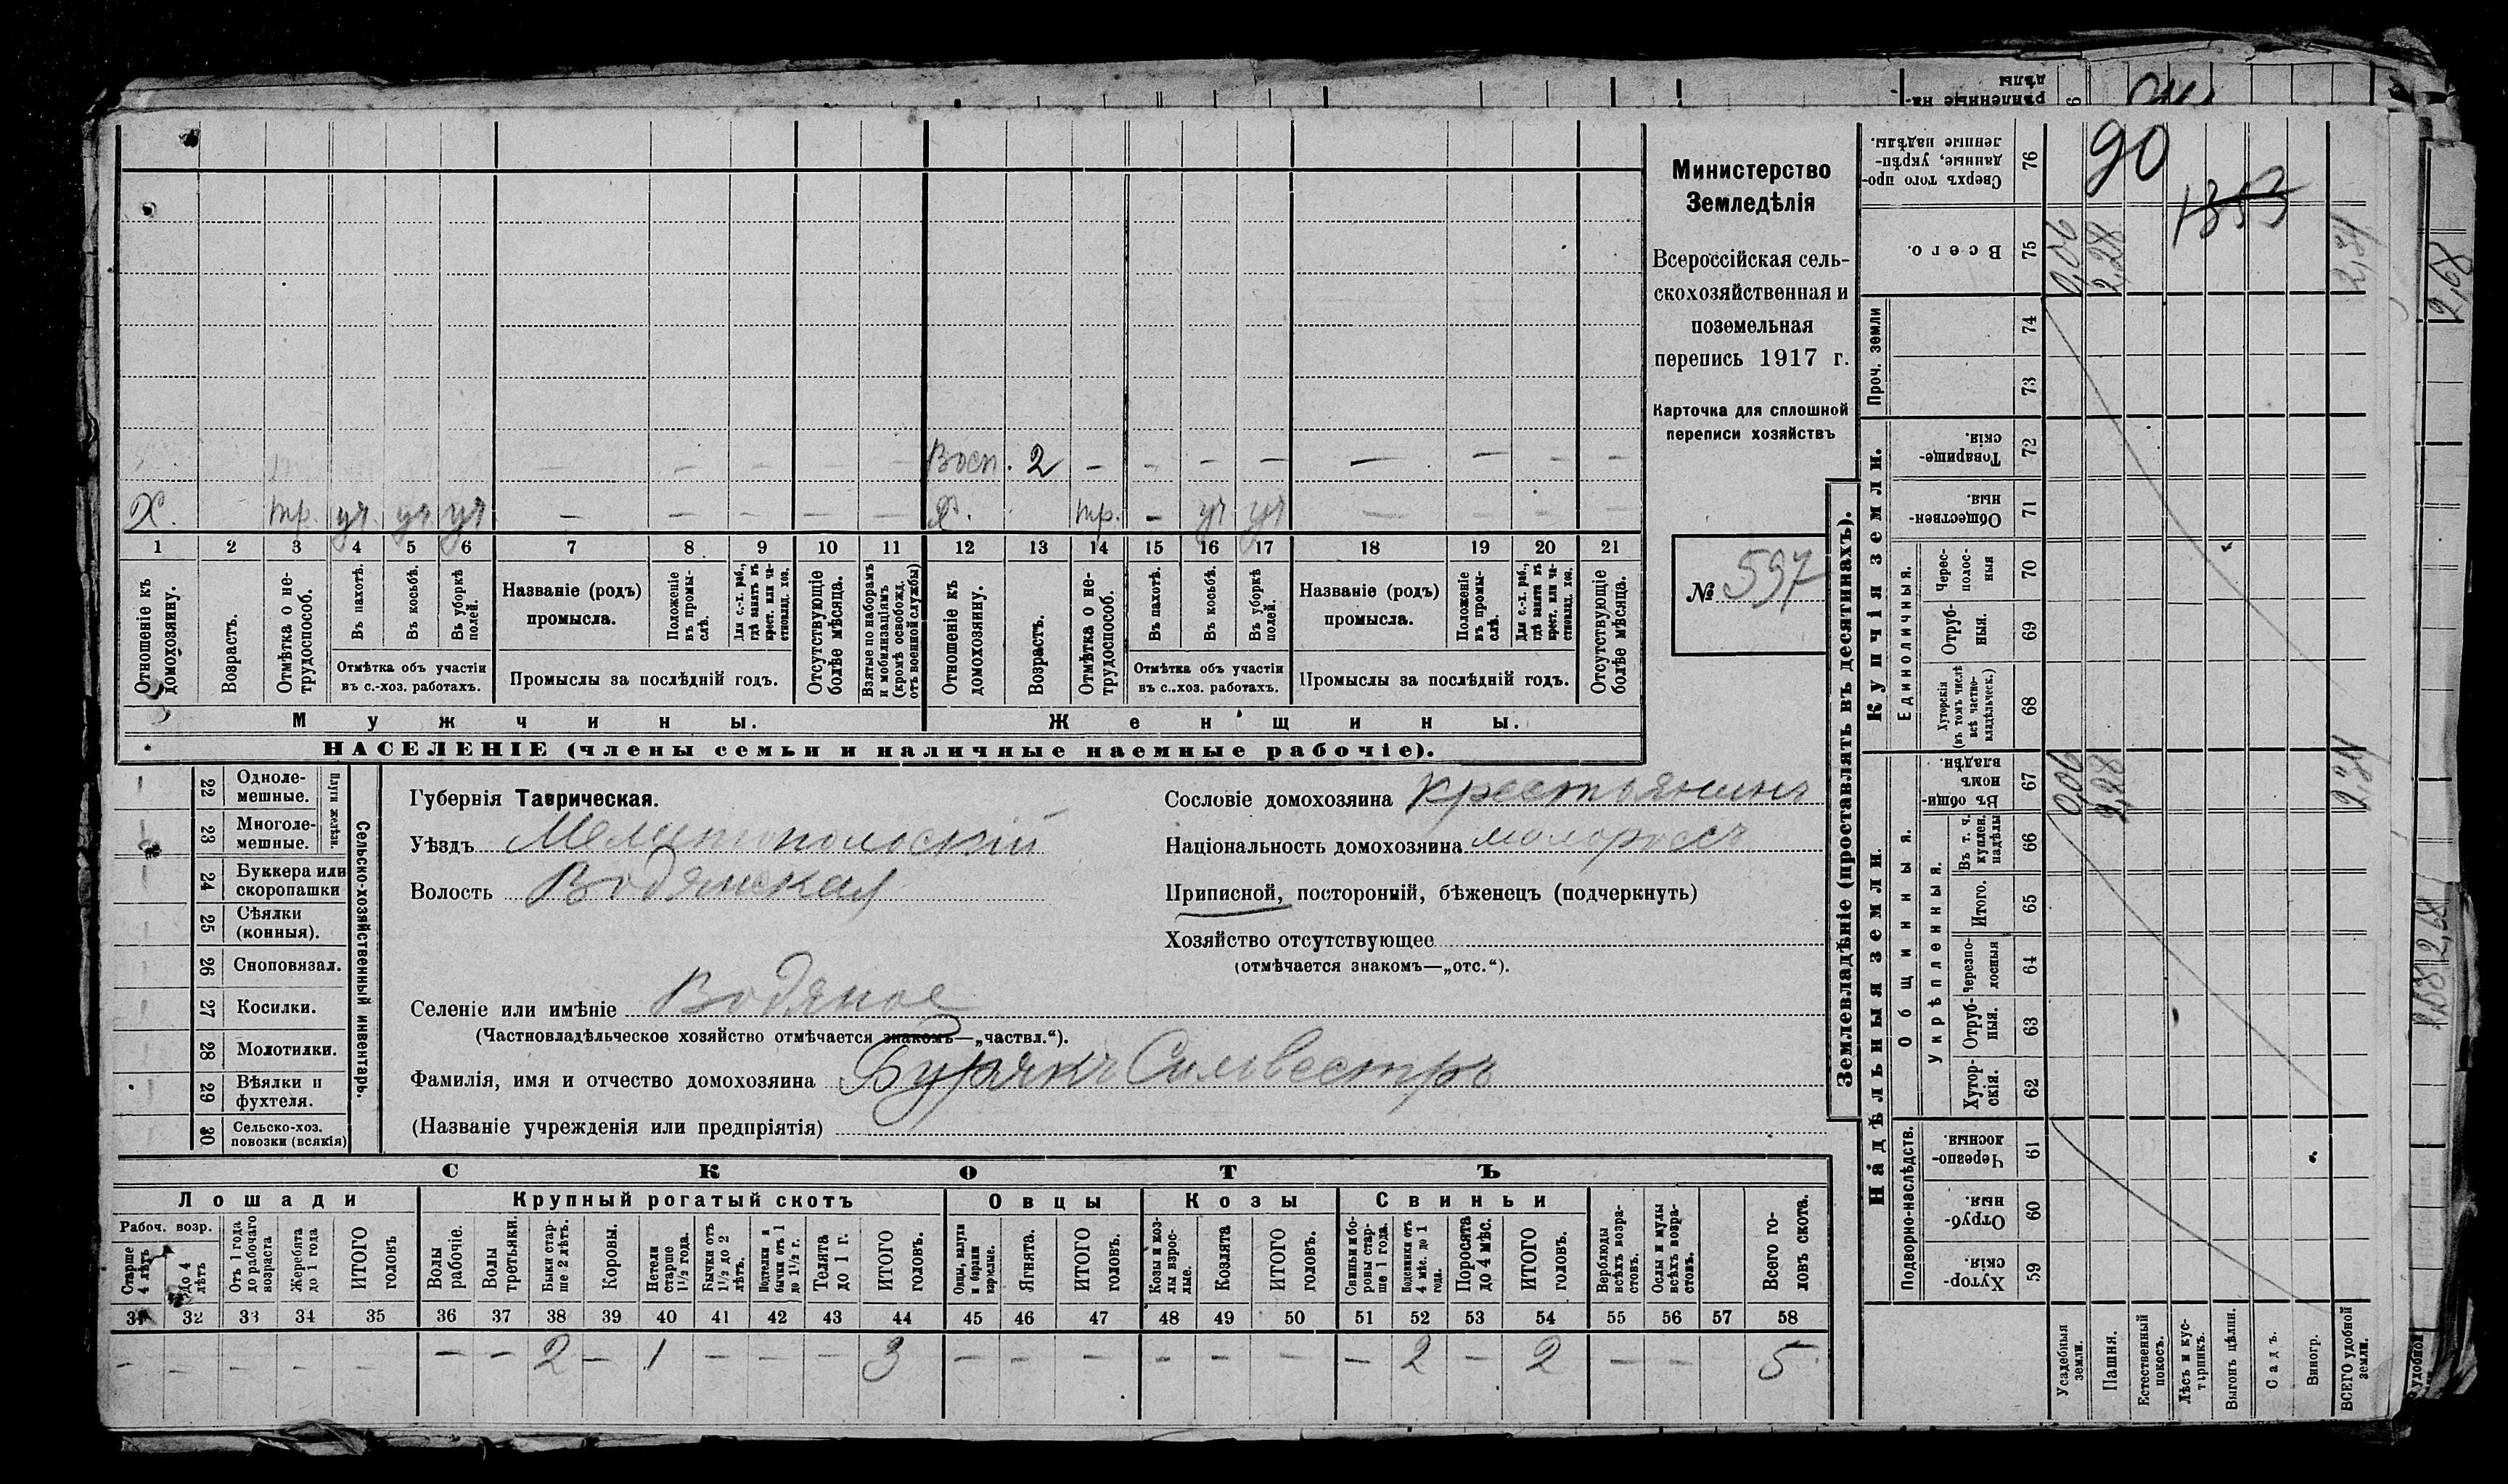 90
1353
Министерство
Земледѣлія
Всероссійская сель-
скохозяйственная и
поземельная
перепись 1917 г.
Карточка для сплошной
переписи хозяйствъ
№ 597
Восп. 2 – – – – – – – –
Х. тр. уч. уч. уч. – – – – – Х. тр. – уч уч – – – –
1 2 3 4 5 6 7 8 9 10 11 12 13 14 15 16 17 18 19 20 21
Отношеніе къ домохозяину.
Возрастъ.
Отмѣтка о не-трудоспособ.
Въ пахотѣ.
Въ косьбѣ.
Въ уборкѣ полей.
Отмѣтка объ участіи
въ с.-хоз. работахъ.
Названіе (родъ)
промысла.
Положеніе въ промы-слѣ.
Для с.-х. раб., гдѣ занятъ въ крест. или ча-стновлад. хоз.
Промыслы за послѣдній годъ.
Отсутствующіе болѣе мѣсяца.
Взятые по наборамъ и мобилизаціямъ (кромѣ освобожд. отъ военной службы)
Отношеніе къ домохозяину.
Возрастъ.
Отмѣтка о не-трудоспособ.
Въ пахотѣ.
Въ косьбѣ.
Въ уборкѣ полей.
Отмѣтка объ участіи
въ с.-хоз. работахъ.
Названіе (родъ)
промысла.
Положеніе въ промы-слѣ.
Для с.-х. раб., гдѣ занята въ крест. или ча-стновлад. хоз.
Промыслы за послѣдній годъ.
Отсутствующіе болѣе мѣсяца.
Мужчины.
Женщины.
НАСЕЛЕНІЕ (члены семьи и наличные наемные рабочіе).
Сельско-хозяйственный инвентарь.
Плуги желѣзн.
22 Одноле-мешные.
23 Многоле-мешные.
24 Буккера или скоропашки
25 Сѣялки (конныя).
26 Сноповязал.
27 Косилки.
28 Молотилки.
29 Вѣялки и фухтеля.
30 Сельско-хоз. повозки (всякія)
Губернія Таврическая.
Уѣздъ Мелитопольскій
Волость Водянская
Селеніе или имѣніе Водяное
(Частновладѣльческое хозяйство отмѣчается знакомъ—„частвл.“).
Фамилія, имя и отчество домохозяина Бурякъ Силвестръ
(Названіе учрежденія или предпріятія)
Сословіе домохозяина крестьянинъ
Національность домохозяина малороссъ
Приписной, посторонній, бѣженецъ (подчеркнуть)
Хозяйство отсутствующее
(отмѣчается знакомъ—„отс.“).
СКОТЪ
Лошади
Крупный рогатый скотъ
Овцы
Козы
Свиньи
Рабоч. возр.
Старше 4 лѣтъ
До 4 лѣтъ
Отъ 1 года до рабочаго возраста
Жеребята до 1 года
ИТОГО головъ
Волы рабочіе.
Волы третьяки.
Быки стар-ше 2 лѣтъ.
Коровы.
Нетели старше 1½ года.
Бычки отъ 1½ до 2 лѣтъ.
Подтелки и бычки отъ 1 до 1½ г.
Телята до 1 г.
ИТОГО головъ.
Овцы, валухи и бараны взрослые.
Ягнята.
ИТОГО головъ.
Козы и коз-лы взрос-лые.
Козлята
ИТОГО головъ.
Свиньи и бо-ровы стар-ше 1 года.
Подсвинки отъ 4 мѣс. до 1 года.
Поросята до 4 мѣс.
ИТОГО головъ.
Верблюды всѣхъ возра-стовъ.
Ослы и мулы всѣхъ возра-стовъ.
Всего го-ловъ скота.
31 32 33 34 35 36 37 38 39 40 41 42 43 44 45 46 47 48 49 50 51 52 53 54 55 56 57 58
– – – – – – – 2 – 1 – – – 3 – – – – – – – 2 – 2 – – 5
Землевладѣніе (проставлять въ десятинахъ).
Надѣльныя земли.
Купчія земли.
Проч. земли
Подворно-наслѣдств.
Общинныя.
Укрѣпленныя.
Единоличныя.
Хутор-скія. 59
Отруб-ныя. 60
Черезпо-лосныя. 61
Хутор-скія. 62
Отруб-ныя. 63
Черезпо-лосныя 64
Итого. 65
Въ т. ч. куплен. надѣлы 66
Въ общин-номъ владѣн. 67
Хуторскія (въ томъ числѣ всѣ частно-владѣльческ.) 68
Отруб-ныя. 69
Черес-полос-ныя 70
Обществен-ныя. 71
Товарище-скія. 72
73
74
Всего. 75
Сверхъ того про-данные, укрѣп-ленные надѣлы. 76
Усадебныя земли. 0,06 0,06
Пашня. 2,28 2,28
Естественный покосъ.
Лѣсъ и кус-тарникъ.
Выгонъ цѣлин.
Садъ.
Виногр.
ВСЕГО удобной земли. 2,34 2,34
2,68
2,68